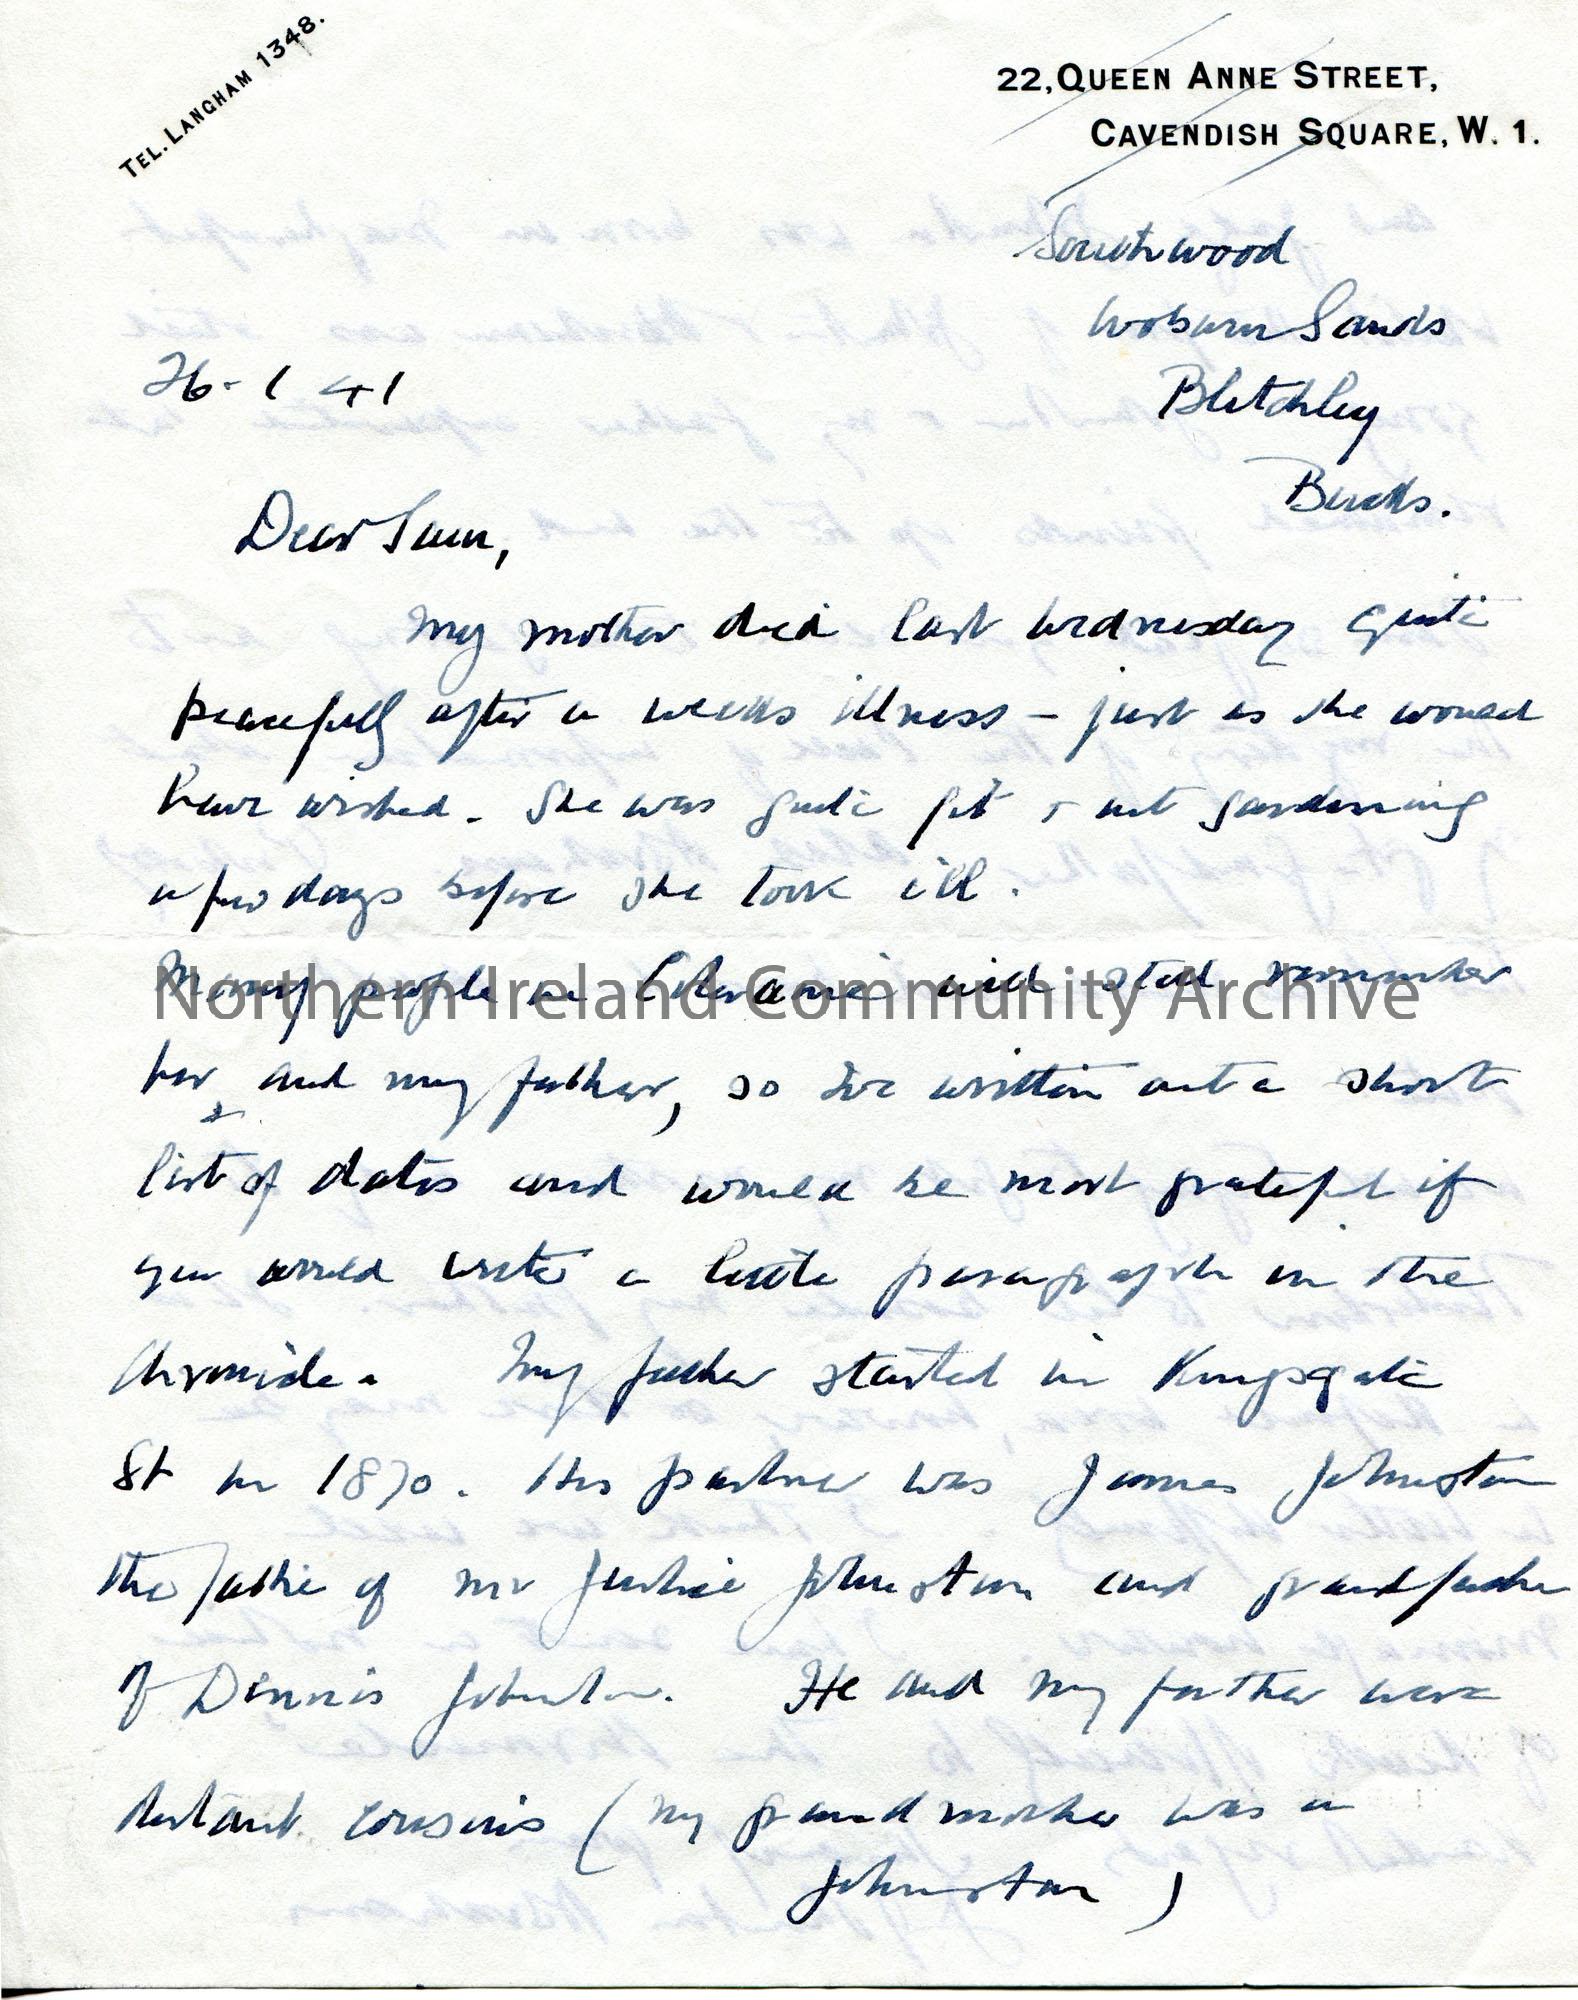 TEL. LANGHAM 1348.
22, QUEEN ANNE STREET,
CAVENDISH SQUARE, W. 1.
Southwood
Woburn Sands
Bletchley
Bucks.
26-1 41
Dear Sam,
My mother died last Wednesday quite
peacefully after a weeks illness - just as she would
have wished. She was quite fit & out gardening
a few days before she took ill.
Many people in Coleraine will still remember
her and my father, so I've written out a short
list of dates and would be most grateful if
you would write a little paragraph in the
Chronicle. My father started in Kingsgate
St in 1870. His partner was James Johnston
the father of Mr Justice Johnston and grandfather
of Dennis Johnston. He and my father were
distant cousins (my grandmother was a
Johnston)
Northern Ireland Community Archive